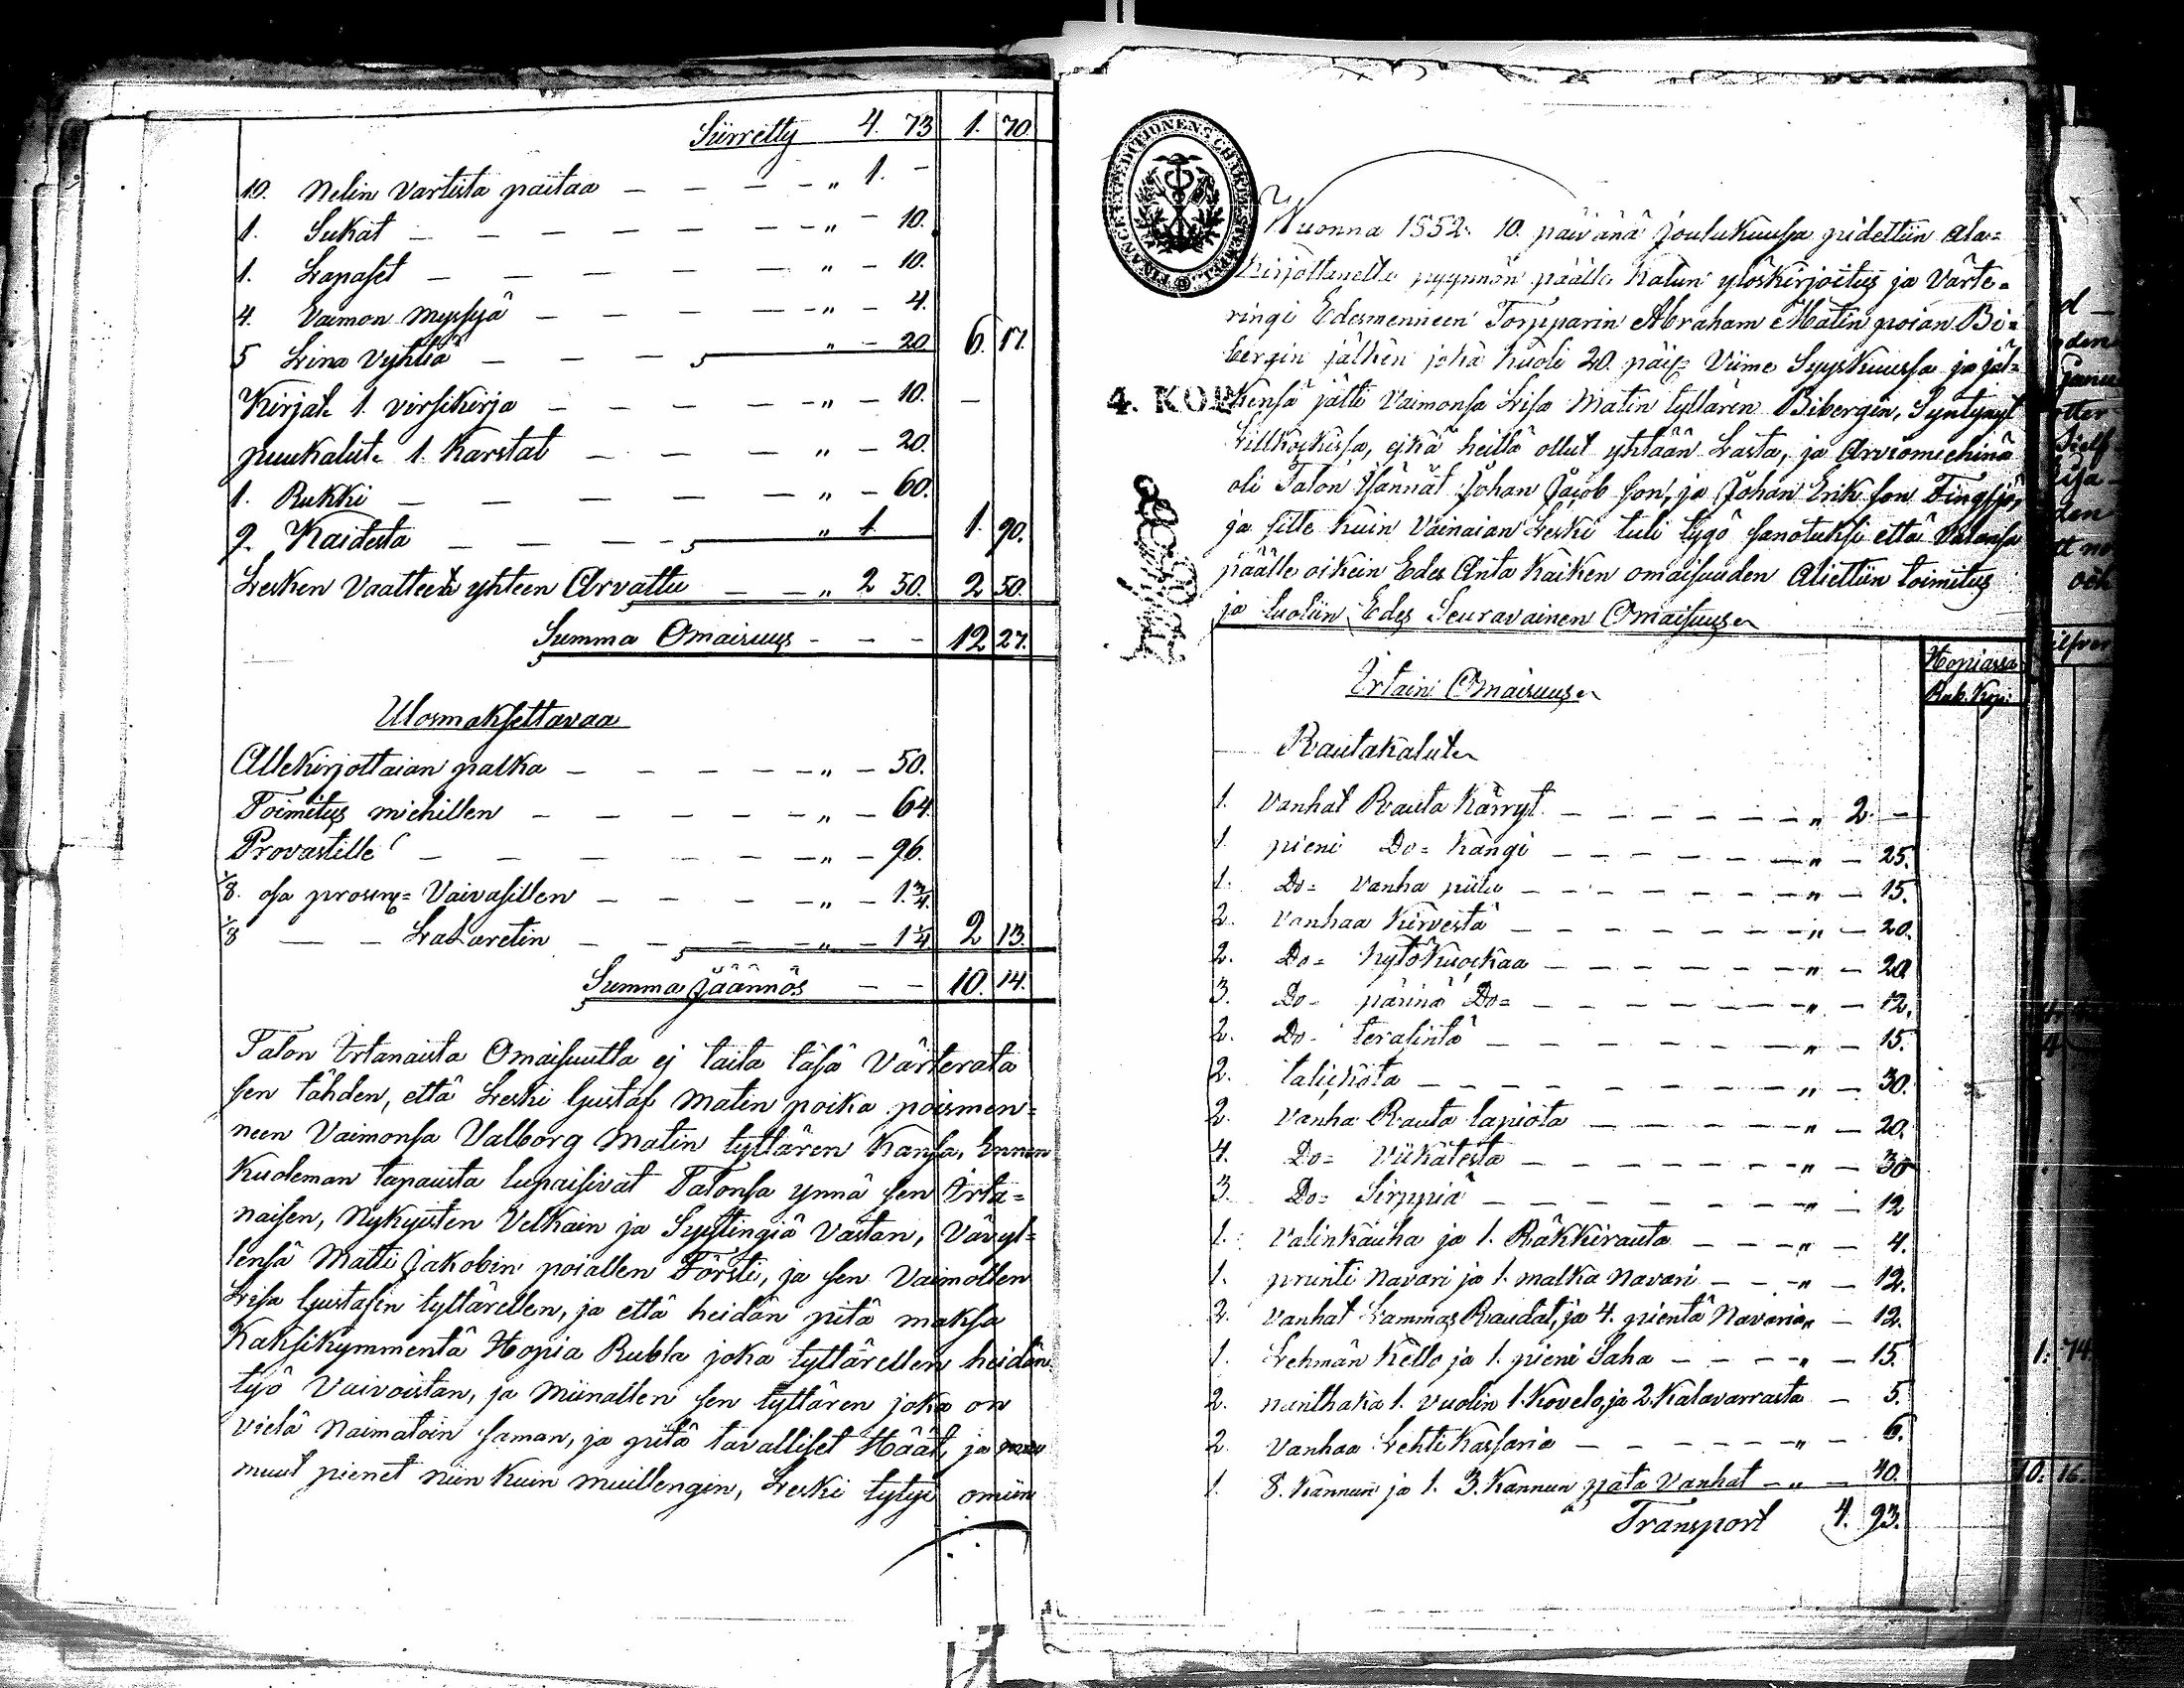 Siirretty 4. 73 1. 70.
10. Nelin Vartista paitaa — — — — „ 1. —
1. Sukat — — — — — — — „ — 10.
1. Lapaset — — — — — — „ — 10.
4. Vaimon myssyä — — — — — „ — 4.
5 Lina Vyhtiä — — — „ — 20 6. 17.
Kirjat. 1. virsikirja — — — — — „ — 10. —
puukalut. 1. Karstat — — — — „ — 20.
1. Rukki — — — — — — „ — 60.
9. Kaidesta — — — — „ 1 1. 90.
Lesken Vaatteet yhteen Arvattu — — „ 2 50. 2 50.
Summa Omaisuus - - - 12 27.
Ulosmaksettavaa
Allekirjottaian palka — — — — — „ — 50.
Toimitus miehillen — — — — — „ — 64.
Provastille — — — — — — „ — 96.
1/8. osa prosen= Vaivasillen — — — — „ — 1 3/4.
1/8 — — Lasaretin — — — — „ — 1 1/4 2 13.
Summa Jäännös — — 10. 14.
Talon Irtanaista Omaisuutta ej taita täsä Värterata
sen tähden, että Leski Gustaf Matin poika poismen=
neen Vaimonsa Valborg Matin tyttären Kansa, Ennen
Kuoleman tapausta lupaisivat Talonsa ynnä sen Irta=
naisen, Nykyisten Velkain ja Syytingiä Vastan, Vävyl=
lensä Matti Jakobin poiallen Försti, ja sen Vaimollen
Lisa Gustafin tyttärellen, ja että heidän pitä maksa
Kaksikymmentä Hopia Rubla joka tyttärellen heidän
työ Vaivoistan, ja Miinallen sen tyttären joka on
vielä Naimatoin saman, ja pitä tavalliset Häät, ja
muut pienet niin kuin muillengin, Leski tytyi omiin
FINANCE-EXPEDITIONENS CHARTÆ-STEMPEL
4. KOP.
Vuonna 1852. 10. päivänä Joulukuussa pidettiin ala=
kirjottanelta pyynnön päälle Kalun ylöskirjoitus ja Värte=
ringi Edesmenneen Torpparin Abraham Matin poian Bi=
bergin jälken joka kuoli 20. päiv= Viime Syyskuussa ja jäl=
kensä jätti Vaimonsa Lisa Matin tyttären Bibergin, Syntynyt
Lillkåskissa, ejkä heillä ollut yhtään Lasta, ja Arviomiehinä
oli Talon Isännät Johan Jacob son, ja Johan Erik son Tingsjö,
ja sitte kuin Vainaian Leski tuli tygö sanotuksi että Valansa
päälle oikein Edes Anta Kaiken omaisuuden Aliettiin toimitus
ja tuoliin Edes Seuravainen Omaisuus.
Hopiassa
Irtain Omaisuus. Rub. Kop.
Rautakalut.
1. Vanhat Rauta Kärryt — — — — — — „ 2. —
1. pieni Do= Kangi — — — — — — „ — 25.
1. Do= Vanha piilu — — — — — — „ — 15.
2. Vanhaa Kirvestä — — — — — — „ — 20.
2. Do= Kytökuockaa — — — — — — „ — 20.
3. Do= pärinä Do= — — — — — — „ — 12.
2. Do= teralintä — — — — — — „ — 15.
2. talickota — — — — — — — „ — 30.
2. Vanha Rauta lapiota — — — — — „ — 20.
4. Do= Viikatesta — — — — — — „ — 30
3. Do= Sirppiä — — — — — — — „ — 12
1. Valinkauha ja 1. Räkkirauta — — — „ — 4.
1. prunti Navari ja 1. malka Navari — — „ — 12.
2. Vanhat Lammas Raudat, ja 4. pientä Navaria „ — 12.
1. Lehmän Kello ja 1. pieni Saha — — — „ — 15.
2. 1. vuolin 1. Kovelo, ja 2. Kalavarrasta — 5.
2. Vanhaa Lehti Kassaria — — — — — — „ — 6.
1. 8. Kannun ja 1. 3. Kannun pata Vanhat — „ — 40.
Transport 4. 93.
1: 74.
10: 16.